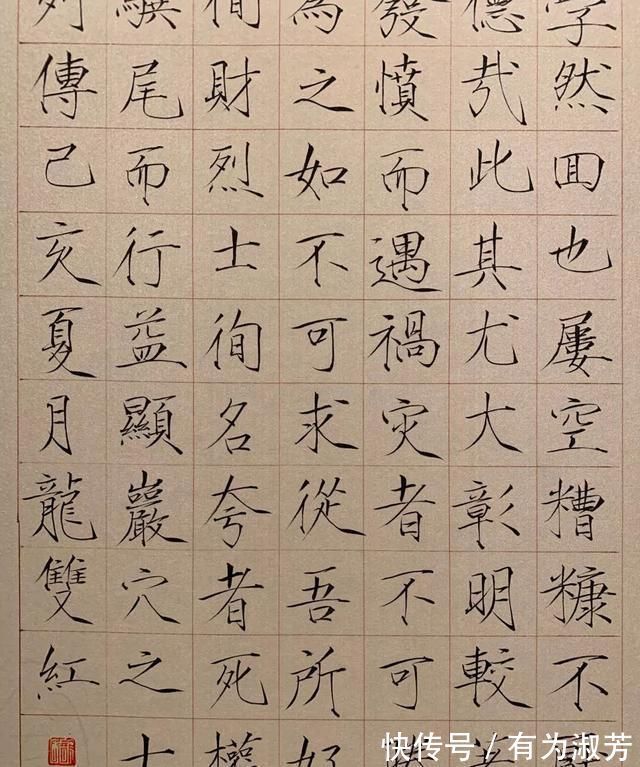 然回也屢空糟糠不
德哉此其尤大彰明較
發憤而遇禍灾者不可
為之如不可求從吾所好
徇財烈士徇名夸者死權
驥尾而行益顯巖穴之士
列傳己亥夏月龍雙紅
快传号/有为淑芳